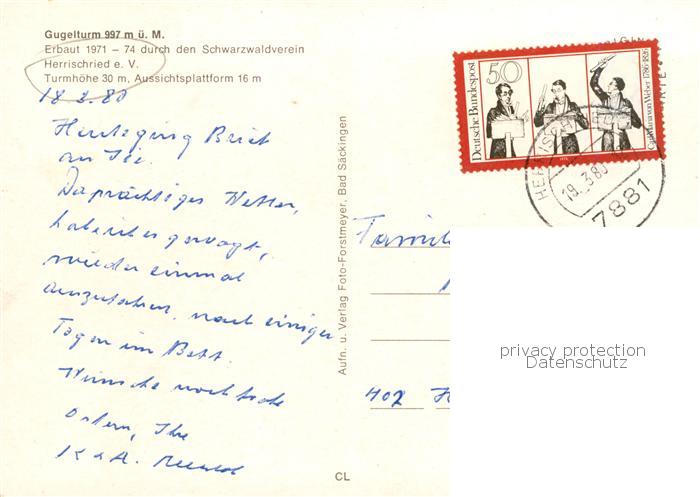 Gugelturm 997 m ü. M.
Erbaut 1971 – 74 durch den Schwarzwaldverein
Herrischried e. V.
Turmhöhe 30 m, Aussichtsplattform 16 m
18.3.80
Heute ging Brief
an Sie.
Da prächtiges Wetter,
habe ich es gewagt,
wieder einmal
auszufahren, nach einigen
Tagen im Bett.
Wünsche noch frohe
Ostern, Ihre
K & A.
Aufn. u. Verlag Foto-Forstmeyer, Bad Säckingen
CL
Deutsche Bundespost
50
Carl Maria von Weber 1786-1826
19.3.80
7881
Famil
402
privacy protection
Datenschutz